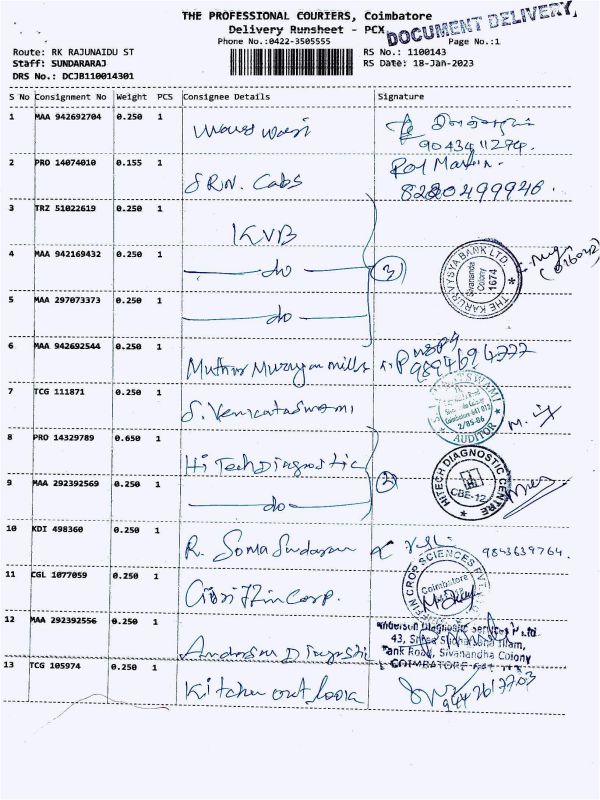 THE PROFESSIONAL COURIERS, Coimbatore
Delivery Runsheet - PCX
DOCUMENT DELIVERY
Phone No.:0422-3505555
Page No.:1
Route: RK RAJUNAIDU ST
RS No.: 1100143
Staff: SUNDARARAJ
RS Date: 18-Jan-2023
DRS No.: DCJB110014301
S No Consignment No Weight PCS Consignee Details Signature
1 MAA 942692704 0.250 1
9043411294.
2 PRO 14074010 0.155 1 S.R.N. Cabs
3 TRZ 51022619 0.250 1 KVB
4 MAA 942169432 0.250 1 do 3
THE KARUR VYSYA BANK LTD
Sivananda
Colony
1674
5 MAA 297073373 0.250 1 do
6 MAA 942692544 0.250 1 Muthu Murugan mills
9894694777
7 TCG 111871 0.250 1 S. Venkataswami
2/85-86
AUDITOR
8 PRO 14329789 0.650 1 Hi Tech Diagnostic
9 MAA 292392569 0.250 1 do 2
HITECH DIAGNOSTIC CENTRE
CBE-12
10 KDI 498360 0.250 1 R. Soma Sundaram
9843639764.
11 CGL 1077059 0.250 1 Corp.
CROP SCIENCES PVT
Coimbatore
12 MAA 292392556 0.250 1 Diagnostic
Diagnostic Services P Ltd
43,
Tank Road, Sivanandha Colony
COIMBATORE
13 TCG 105974 0.250 1 Kitchen